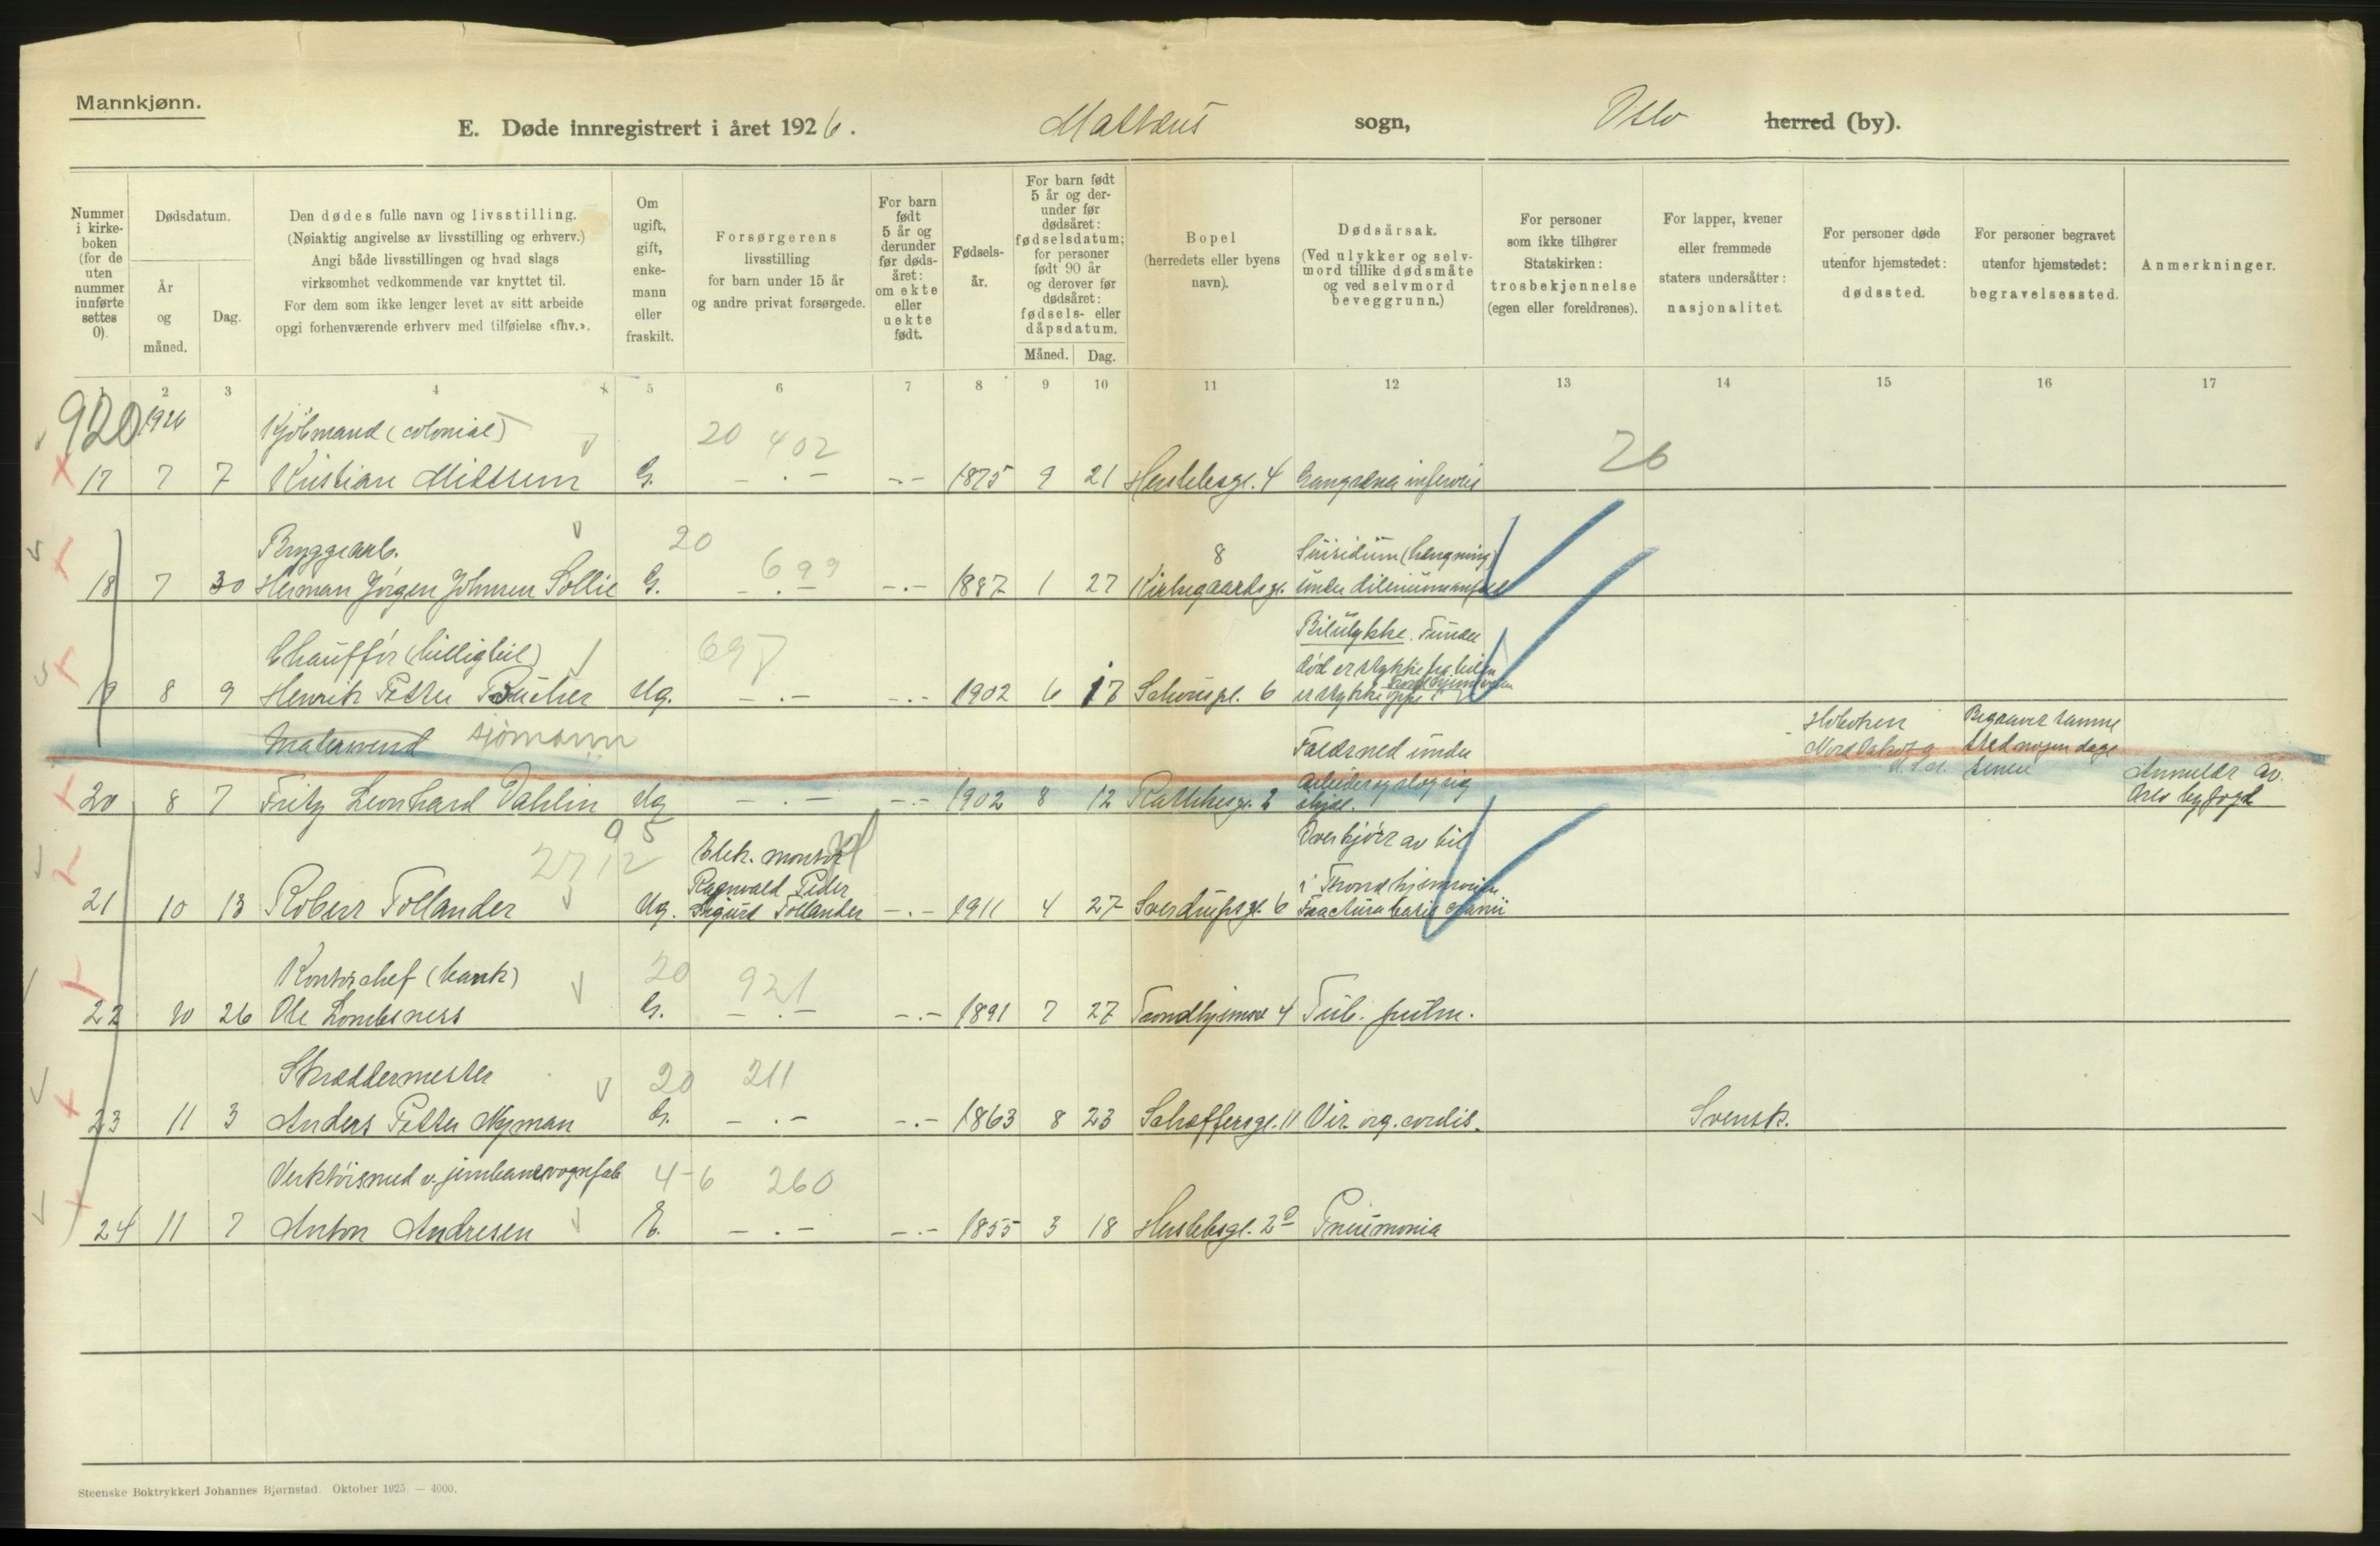 Mannkjønn.
E. Døde innregistrert i året 1926. Mattæus sogn, Oslo herred (by).
Nummer i kirke-boken (for de uten nummer innførte settes 0).
Dødsdatum.
År og måned.
Dag.
Den dødes fulle navn og livsstilling.
(Nøiaktig angivelse av livsstilling og erhverv.)
Angi både livsstillingen og hvad slags
virksomhet vedkommende var knyttet til.
For dem som ikke lenger levet av sitt arbeide
opgi forhenværende erhverv med tilføielse «fhv.».
Om ugift, gift, enke-mann eller fraskilt.
Forsørgerens
livsstilling
for barn under 15 år
og andre privat forsørgede.
For barn født 5 år og derunder før døds-året: om ekte eller uekte født.
Fødsels-år.
For barn født 5 år og der-under før dødsåret: fødselsdatum; for personer født 90 år og derover før dødsåret: fødsels- eller dåpsdatum.
Måned. Dag.
Bopel
(herredets eller byens navn).
Dødsårsak.
(Ved ulykker og selv-mord tillike dødsmåte og ved selvmord beveggrunn.)
For personer
som ikke tilhører
Statskirken:
trosbekjennelse
(egen eller foreldrenes).
For lapper, kvener
eller fremmede
staters undersåtter:
nasjonalitet.
For personer døde
utenfor hjemstedet:
dødssted.
For personer begravet
utenfor hjemstedet:
begravelsessted.
Anmerkninger.
1 2 3 4 5 6 7 8 9 10 11 12 13 14 15 16 17
920 1926 Kjøbmand (colonial) 20 402 26
17 7 7 Kristian Mittsum G. – . – -.- 1875 9 21 Herslebsgt. 4 Gangræna
Bryggearb. 20 699 8 Suisidium (hengning)
18 7 30 Herman Jørgen Johnsen Sollie G. – . – -.- 1887 1 27 Kirkegaardsgt. under
Chauffør (billigbil) 697 Bilulykke. Funnet
død
19 8 9 Henrik Petter Bucher Ug. – . – -.- 1902 6 17 Schousgt. 6
sjømann Faldt ned under Hoboken Begravet samme
Nord Dakota sted nogen dage
U.S.A. senere
20 8 7 Fritz Leonhard Dahlin Ug – . – -.- 1902 8 12 Rathkesgt. 2 arbeide og slog sig ihjel. Anmeldt av
Oslo byfogd
95 2712 Elek. montør Overkjørt av bil
Ragnvald Peder i Trondhjemsveien.
21 10 13 Robert Tollander Ug. Sigurd Tollander -.- 1911 4 27 Sverdrupsgt. 6 Fractura basis cranii
Kontorchef (bank) 20 921
22 10 26 Ole Lombsness G. – . – -.- 1891 7 27 Trondhjemsv 4 Tub. pulm.
Skræddermester 20 211
23 11 3 Anders Petter Nyman G. – . – -.- 1863 8 23 Schæffersgt. 11 Vit. org. cordis. Svensk.
Verktøismed v. jernbanevognfab 4-6 260
24 11 7 Anton Andresen E. – . – -.- 1855 3 18 Herslebsgt. 2 Pneumonia
Steenske Boktrykkeri Johannes Bjørnstad. Oktober 1925. — 4000.